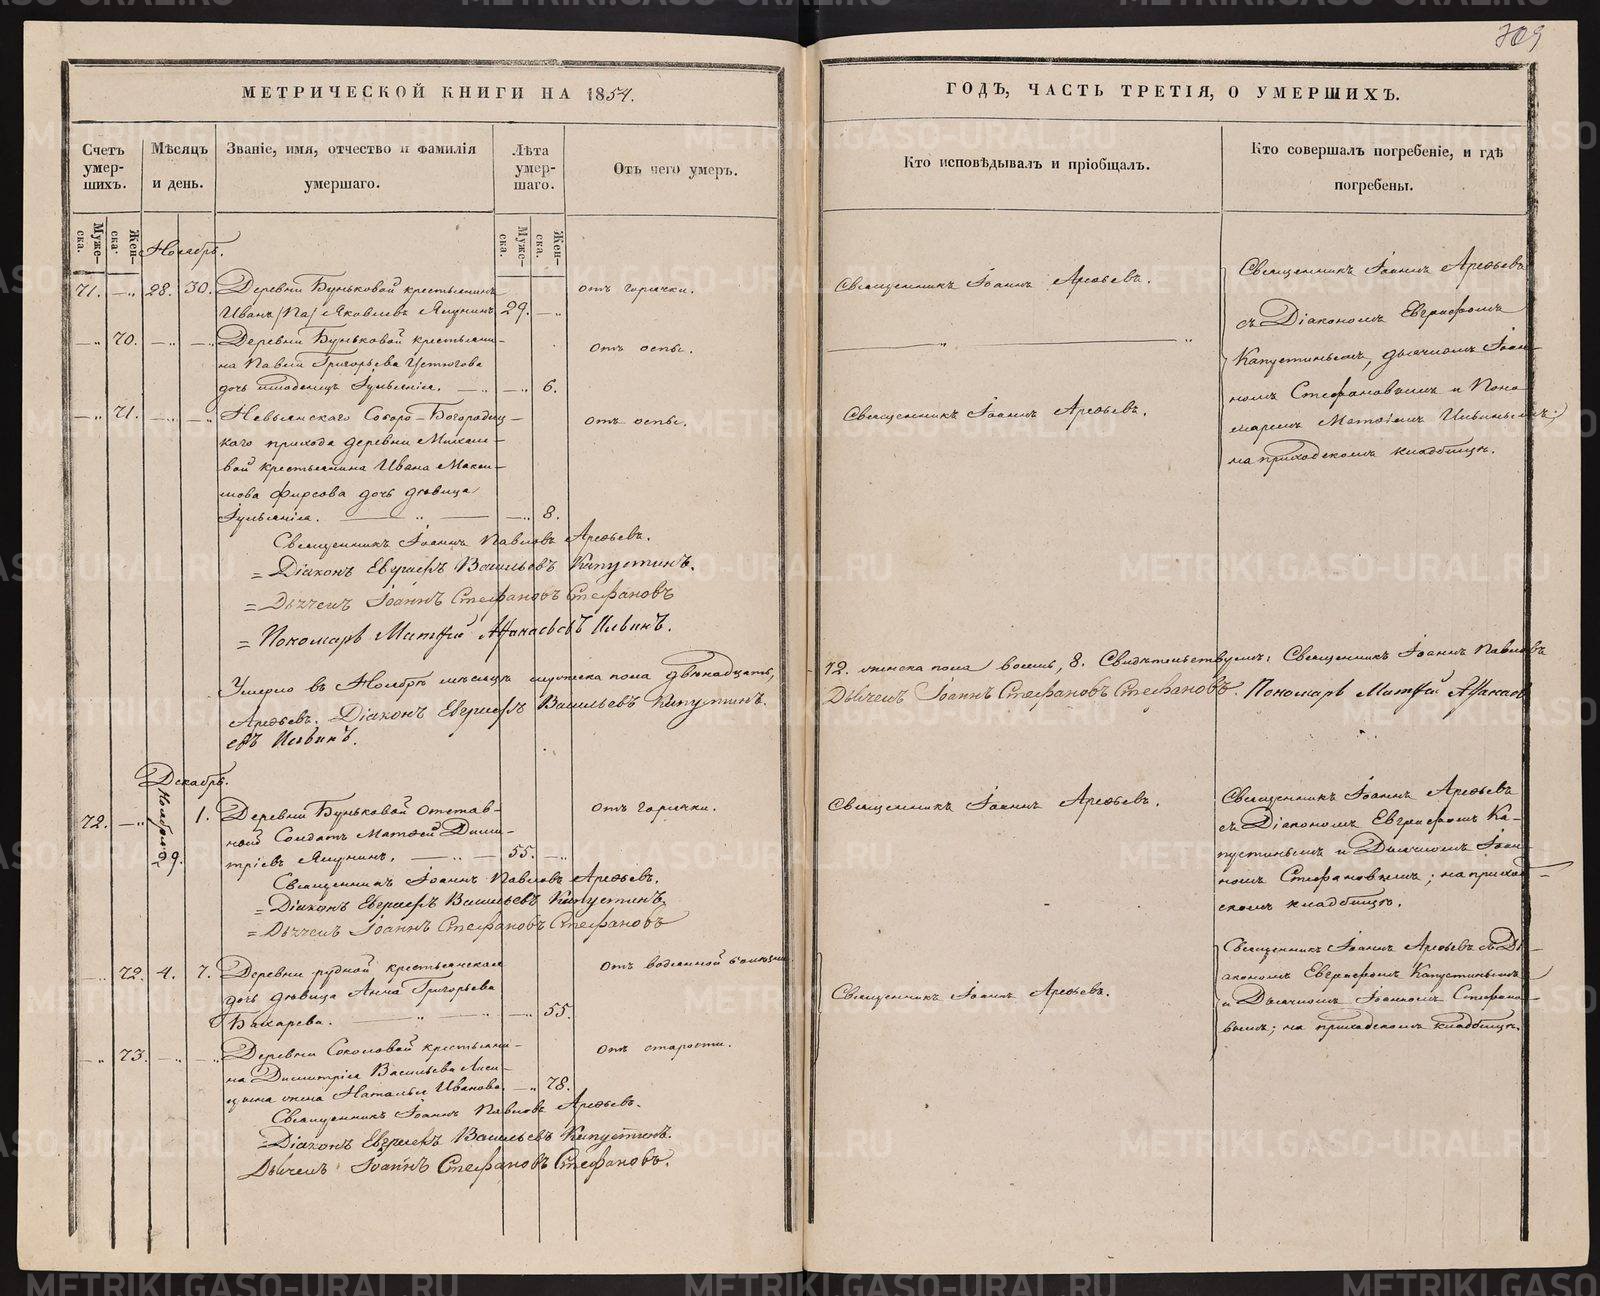 709
МЕТРИЧЕСКОЙ КНИГИ НА 1854.
ГОДЪ, ЧАСТЬ ТРЕТІЯ, О УМЕРШИХЪ.
Счетъ умерших.
Мѣсяцъ и день.
Званіе, имя, отчество и фамилія умершаго.
Лѣта умершаго.
Отъ чего умеръ.
Кто исповѣдывалъ и пріобщалъ.
Кто совершалъ погребеніе, и гдѣ погребены.
Муже-ска.
Жен-ска.
Муже-ска.
Жен-ска.
Ноябрь.
71. — „ 28. 30. Деревни Буньковой крестьянинъ
Иванъ /Па/ Яковлевъ Ялунинъ 29. — „
отъ горячки.
Священникъ Іоаннъ Арефьевъ.
Священникъ Іоаннъ Арефьевъ
съ Діакономъ Евграфомъ
Капустинымъ, дьячкомъ Іоан-
номъ Стефановымъ и Поно-
маремъ Матѳіемъ Ильинымъ;
на приходскомъ кладбищѣ.
— „ 70. — „ — „ Деревни Буньковой крестьяни-
на Павла Григорьева Устюгова
дочь младенецъ Іульянія. — „ — „ 6.
отъ оспы.
— „ 71. — „ — „ Невьянскаго Соборо-Богородиц-
каго прихода деревни Михале-
вой крестьянина Ивана Макси-
мова Фирсова дочь дѣвица
Іульянія. — „ — — „ 8.
отъ оспы.
Священникъ Іоаннъ Арефьевъ.
Священникъ Іоаннъ Павловъ Арефьевъ.
= Діаконъ Евграфъ Васильевъ Капустинъ.
= Дьячекъ Іоаннъ Стефановъ Стефановъ
= Пономарь Матѳій Аѳанасьевъ Ильинъ.
Умерло въ Ноябрѣ мѣсяцѣ мужеска пола двѣнадцать,
12. женска пола восмь, 8. Свидѣтельствуемъ: Священникъ Іоаннъ Павловъ
Арефьевъ. Діаконъ Евграфъ Васильевъ Капустинъ.
Дьячекъ Іоаннъ Стефановъ Стефановъ. Пономарь Матѳій Аѳанась
евъ Ильинъ.
Декабрь.
Ноября
29.
72. — „ 1. Деревни Буньковой отстав-
ной Солдатъ Матѳей Дими-
тріевъ Ялунинъ. — „ — 55. — „
отъ горячки.
Священникъ Іоаннъ Арефьевъ.
Священникъ Іоаннъ Арефьевъ
съ Діакономъ Евграфомъ Ка-
пустинымъ и Дьячкомъ Іоан-
номъ Стефановымъ; на приход-
скомъ кладбищѣ.
Священникъ Іоаннъ Павловъ Арефьевъ.
= Діаконъ Евграфъ Васильевъ Капустинъ.
= Дьячекъ Іоаннъ Стефановъ Стефановъ
— „ 72. 4. 7. Деревни рудной крестьянская
дочь дѣвица Анна Григорьева
Бахарева. — „ — „ — „ 55.
отъ водянной болѣзни
Священникъ Іоаннъ Арефьевъ.
Священникъ Іоаннъ Арефьевъ съ Ді-
акономъ Евграфомъ Капустинымъ
и Дьячкомъ Іоанномъ Стефано-
вымъ; на приходскомъ кладбищѣ.
— „ 73. — „ — „ Деревни Соколовой крестьяни-
на Димитрія Васильева
жена Наталья Иванова. — „ 78.
отъ старости.
Священникъ Іоаннъ Павловъ Арефьевъ.
= Діаконъ Евграфъ Васильевъ Капустинъ.
Дьячекъ Іоаннъ Стефановъ Стефановъ.
METRIKI.GASO-URAL.RU